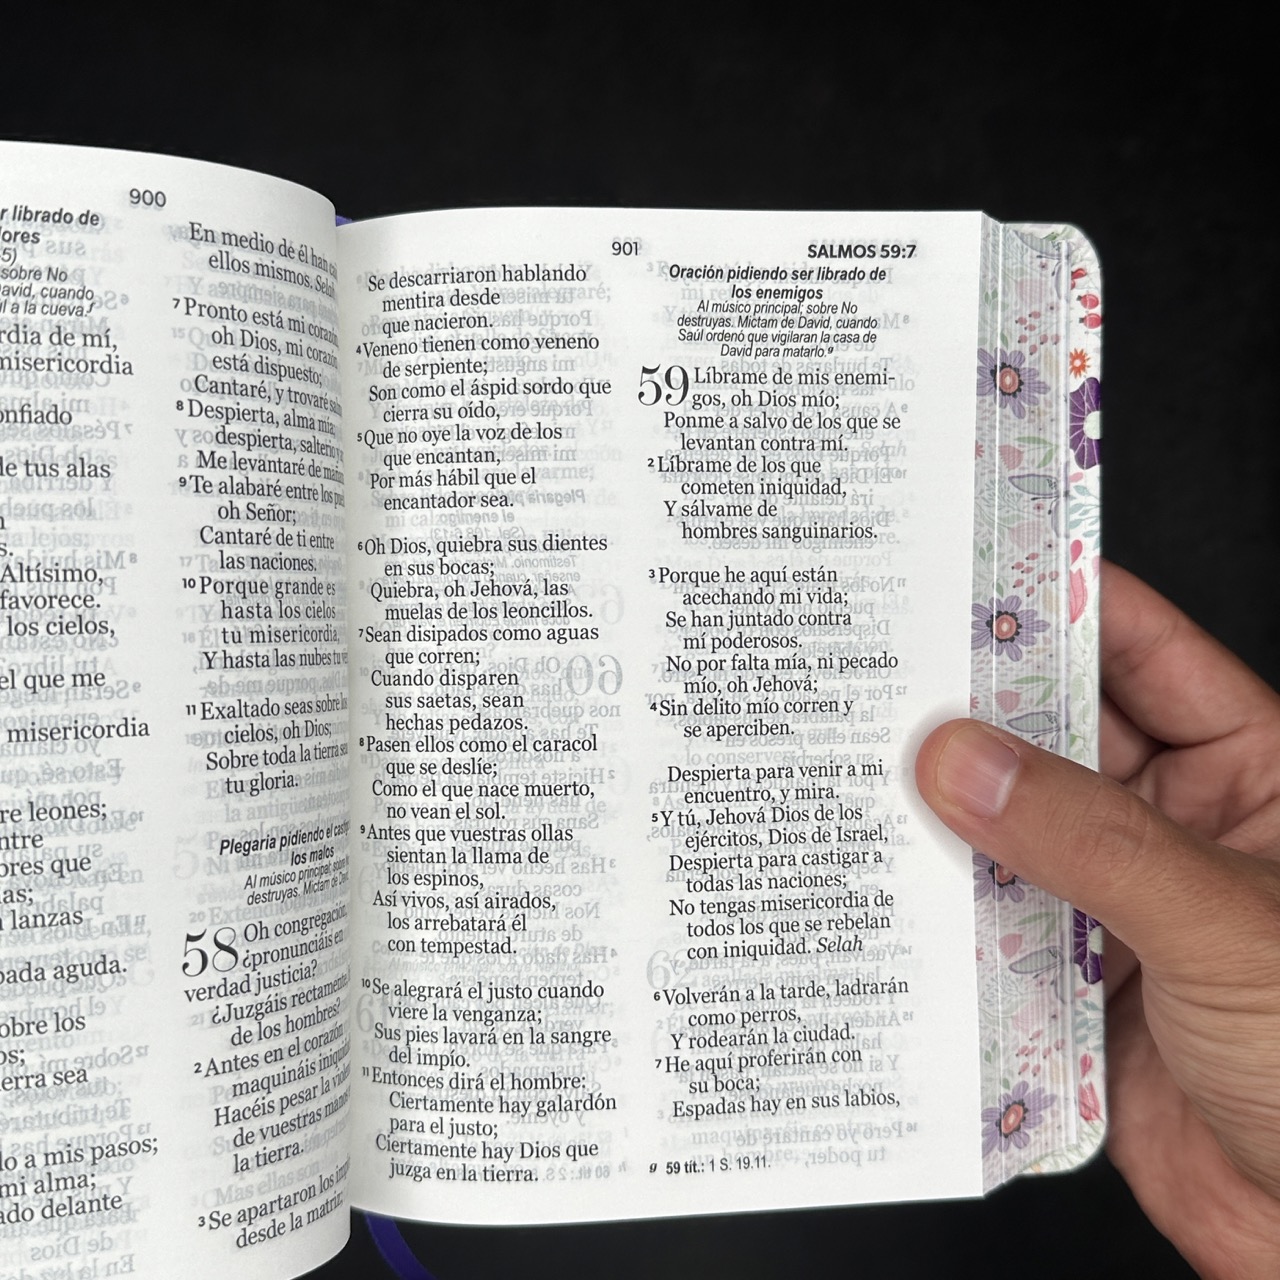 900
r librado de
ores
5)
sobre No
avid, cuando
l a la cueva.f
rdia de mí,
misericordia
onfiado
de tus alas
s.
Altísimo,
favorece.
los cielos,
el que me
misericordia
re leones;
ntre
ores que
as;
lanzas
ada aguda.
obre los
os;
erra sea
o a mis pasos;
mi alma;
ado delante
En medio de él han
ellos mismos. Selah
7 Pronto está mi corazón
oh Dios, mi corazón
está dispuesto;
Cantaré, y trovaré
8 Despierta, alma mía;
despierta, salterio y
Me levantaré de
9 Te alabaré entre los
oh Señor;
Cantaré de ti entre
las naciones.
10 Porque grande es
hasta los cielos
tu misericordia,
Y hasta las nubes tu
11 Exaltado seas sobre
cielos, oh Dios;
Sobre toda la tierra sea
tu gloria.
Plegaria pidiendo el
los malos
Al músico principal; sobre
destruyas. Mictam de
58 Oh congregación,
¿pronunciáis en
verdad justicia?
¿Juzgáis rectamente,
de los hombres?
2 Antes en el corazón
maquináis
Hacéis pesar la
de vuestras manos
la tierra.
3 Se apartaron los
desde la matriz;
901
SALMOS 59:7
Se descarriaron hablando
mentira desde
que nacieron.
4 Veneno tienen como veneno
de serpiente;
Son como el áspid sordo que
cierra su oído,
5 Que no oye la voz de los
que encantan,
Por más hábil que el
encantador sea.
6 Oh Dios, quiebra sus dientes
en sus bocas;
Quiebra, oh Jehová, las
muelas de los leoncillos.
7 Sean disipados como aguas
que corren;
Cuando disparen
sus saetas, sean
hechas pedazos.
8 Pasen ellos como el caracol
que se deslíe;
Como el que nace muerto,
no vean el sol.
9 Antes que vuestras ollas
sientan la llama de
los espinos,
Así vivos, así airados,
los arrebatará él
con tempestad.
10 Se alegrará el justo cuando
viere la venganza;
Sus pies lavará en la sangre
del impío.
11 Entonces dirá el hombre:
Ciertamente hay galardón
para el justo;
Ciertamente hay Dios que
juzga en la tierra.
Oración pidiendo ser librado de
los enemigos
Al músico principal; sobre No
destruyas. Mictam de David, cuando
Saúl ordenó que vigilaran la casa de
David para matarlo.g
59 Líbrame de mis enemi-
gos, oh Dios mío;
Ponme a salvo de los que se
levantan contra mí.
2 Líbrame de los que
cometen iniquidad,
Y sálvame de
hombres sanguinarios.
3 Porque he aquí están
acechando mi vida;
Se han juntado contra
mí poderosos.
No por falta mía, ni pecado
mío, oh Jehová;
4 Sin delito mío corren y
se aperciben.
Despierta para venir a mi
encuentro, y mira.
5 Y tú, Jehová Dios de los
ejércitos, Dios de Israel,
Despierta para castigar a
todas las naciones;
No tengas misericordia de
todos los que se rebelan
con iniquidad. Selah
6 Volverán a la tarde, ladrarán
como perros,
Y rodearán la ciudad.
7 He aquí proferirán con
su boca;
Espadas hay en sus labios,
g 59 tít.: 1 S. 19.11.